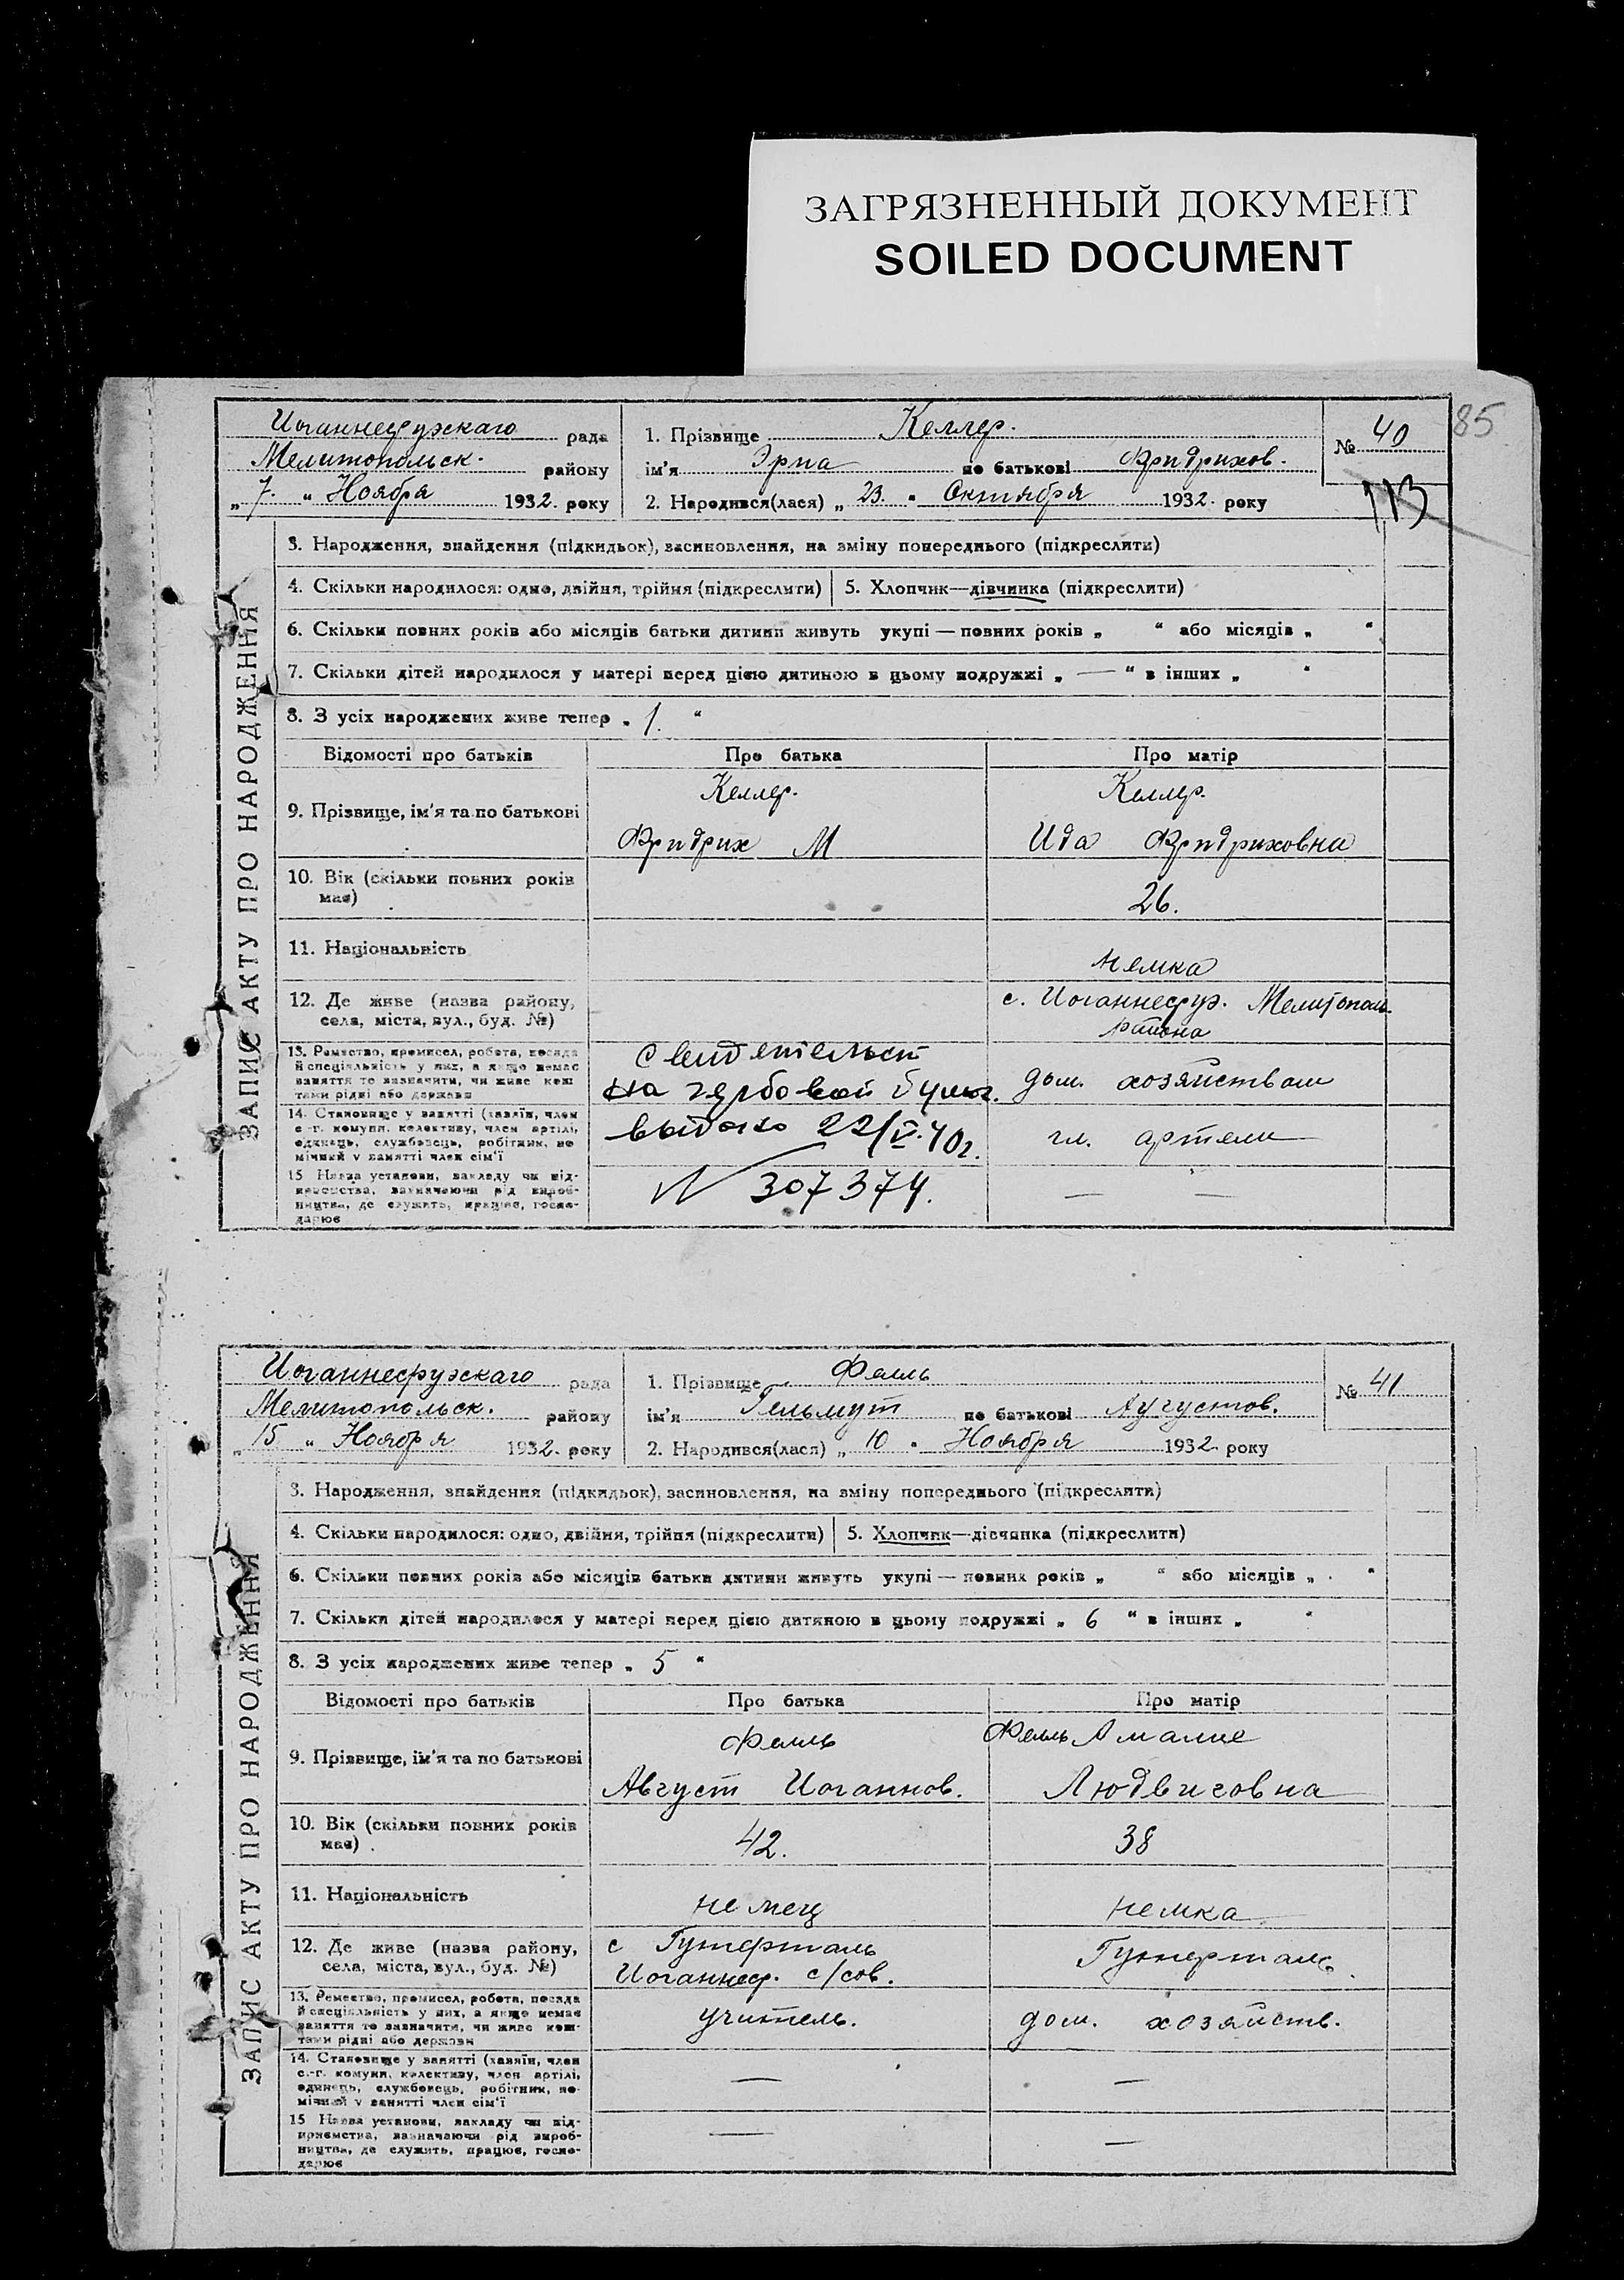 ЗАГРЯЗНЕННЫЙ ДОКУМЕНТ
SOILED DOCUMENT
85
ЗАПИС АКТУ ПРО НАРОДЖЕННЯ
Иоганнесрузскаго рада
Мелитопольск. району
„7." Ноября 1932. року
1. Прізвище Келлер.
ім'я Эрна по батькові Фридрихов.
2. Народився(лася) „23." Октября 1932. року
№ 40
113
3. Народження, знайдення (підкидьок), засиновлення, на зміну попереднього (підкреслити)
4. Скільки народилося: одно, двійня, трійня (підкреслити) 5. Хлопчик—дівчинка (підкреслити)
6. Скільки повних років або місяців батьки дитини живуть укупі — повних років „ " або місяців „ "
7. Скільки дітей народилося у матері перед цією дитиною в цьому подружжі „ — " в інших „ "
8. З усіх народжених живе тепер „ 1. "
Відомості про батьків Про батька Про матір
9. Прізвище, ім'я та по батькові
Келлер.
Фридрих М
Келлер.
Ида Фридриховна
10. Вік (скільки повних років має)
26.
11. Національність
немка
12. Де живе (назва району, села, міста, вул., буд. №)
с. Иоганнесруэ. Мелитополь.
района
13. Ремество, промисел, робота, посада
й спеціяльність у них, а якщо немає
заняття то визначити, чи живе кош
тами рідні або держави
дом. хозяйством
14. Становище у занятті (хазяїн, член
с-г. комуни, колективу, член артілі,
одинець, службовець, робітник, по
мічний у занятті член сім'ї
чл. артели
15 Назва установи, закладу чи під-
приємства, зазначаючи рід вироб-
ництва, де служить, працює, госпо-
дарює
— —
Свидетельст
на гербовой бумаг.
выдано 22/V.40г.
N 307374.
ЗАПИС АКТУ ПРО НАРОДЖЕННЯ
Иоганнесрузскаго рада
Мелитопольск. району
„15" Ноября 1932. року
1. Прізвище Фелль
ім'я Гельмут по батькові Аугустов.
2. Народився(лася) „10" Ноября 1932. року
№ 41
3. Народження, знайдення (підкидьок), засиновлення, на зміну попереднього (підкреслити)
4. Скільки народилося: одно, двійня, трійня (підкреслити) 5. Хлопчик—дівчинка (підкреслити)
6. Скільки повних років або місяців батьки дитини живуть укупі — повних років „ " або місяців „ "
7. Скільки дітей народилося у матері перед цією дитиною в цьому подружжі „ 6 " в інших „ "
8. З усіх народжених живе тепер „ 5 "
Відомості про батьків Про батька Про матір
9. Прізвище, ім'я та по батькові
Фелль
Август Иоганнов.
Фелль Амалие
Людвиговна
10. Вік (скільки повних років має)
42. 38
11. Національність
немец немка
12. Де живе (назва району, села, міста, вул., буд. №)
с Гутерталь
Иоганнеср. с/сов.
Гутерталь.
13. Ремество, промисел, робота, посада
й спеціяльність у них, а якщо немає
заняття то зазначити, чи живе кош-
тами рідні або держави
учитель. дом. хозяйств.
14. Становище у занятті (хазяїн, член
с.-г. комуни, колективу, член артілі,
одинець, службовець, робітник, по-
мічний у занятті член сім'ї
— —
15 Назва установи, закладу чи під-
приємства, зазначаючи рід вироб-
ництва, де служить, працює, госпо-
дарює
— —